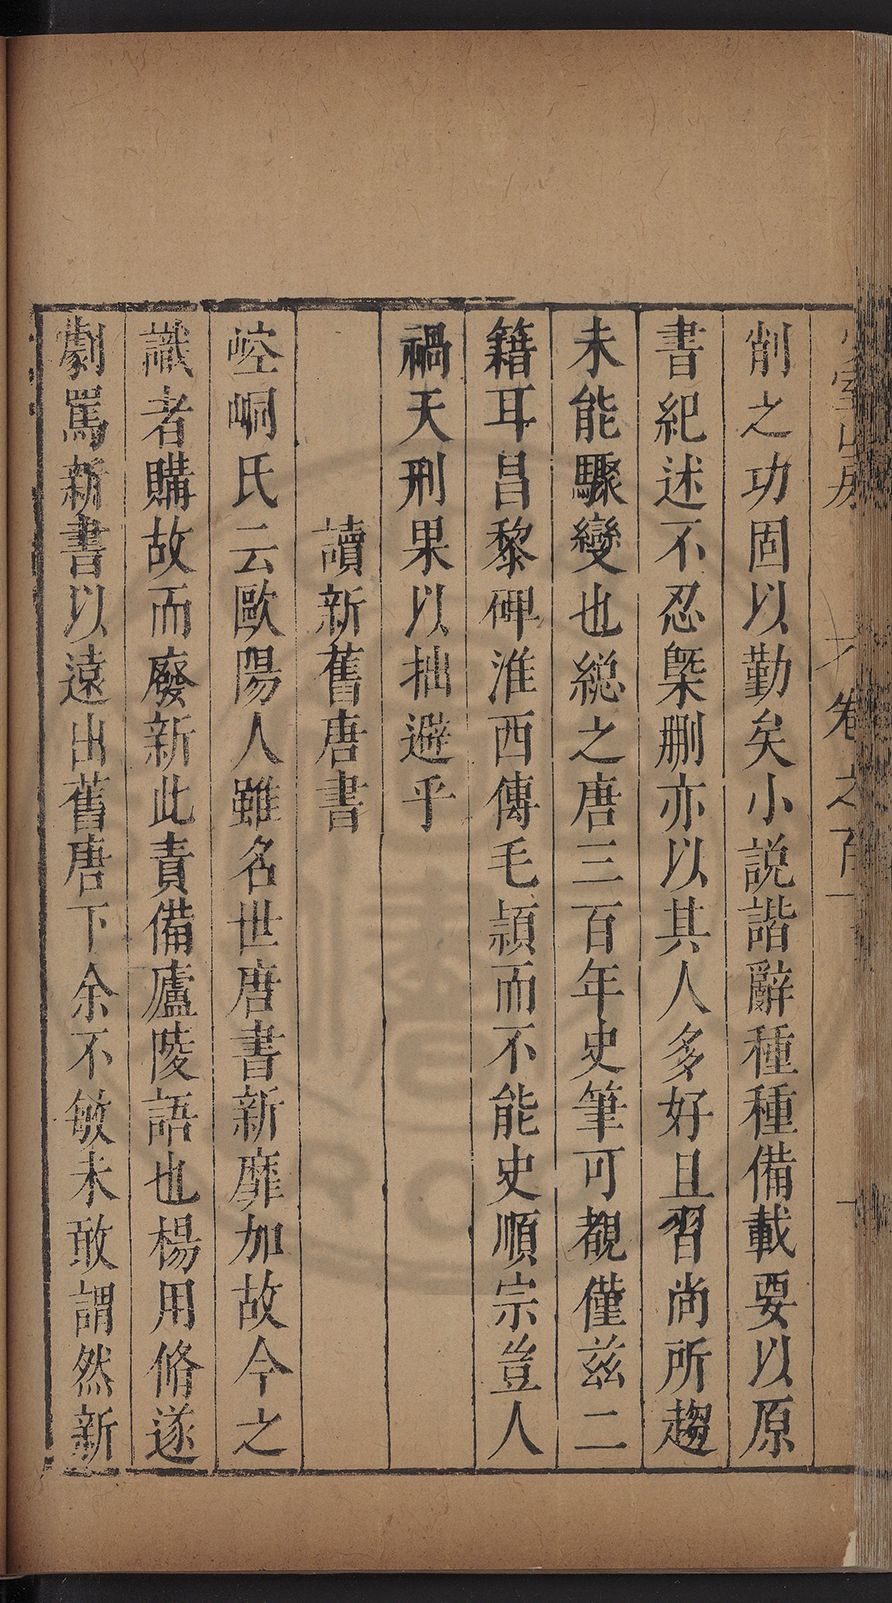 削之功固以勤矣小説諧辭種種備載要以原
書紀述不忍槩删亦以其人多好且習尚所趨
未能驟變也緫之唐三百年史筆可觀僅兹二
籍耳昌黎碑淮西傳毛頴而不能史順宗豈人
禍天刑果以拙避乎
讀新舊唐書
崆峒氏云歐陽人雖名世唐書新靡加故今之
識者購故而廢新此責備廬陵語也楊用脩遂
劇罵新書以遠出舊唐下余不敏未敢謂然新